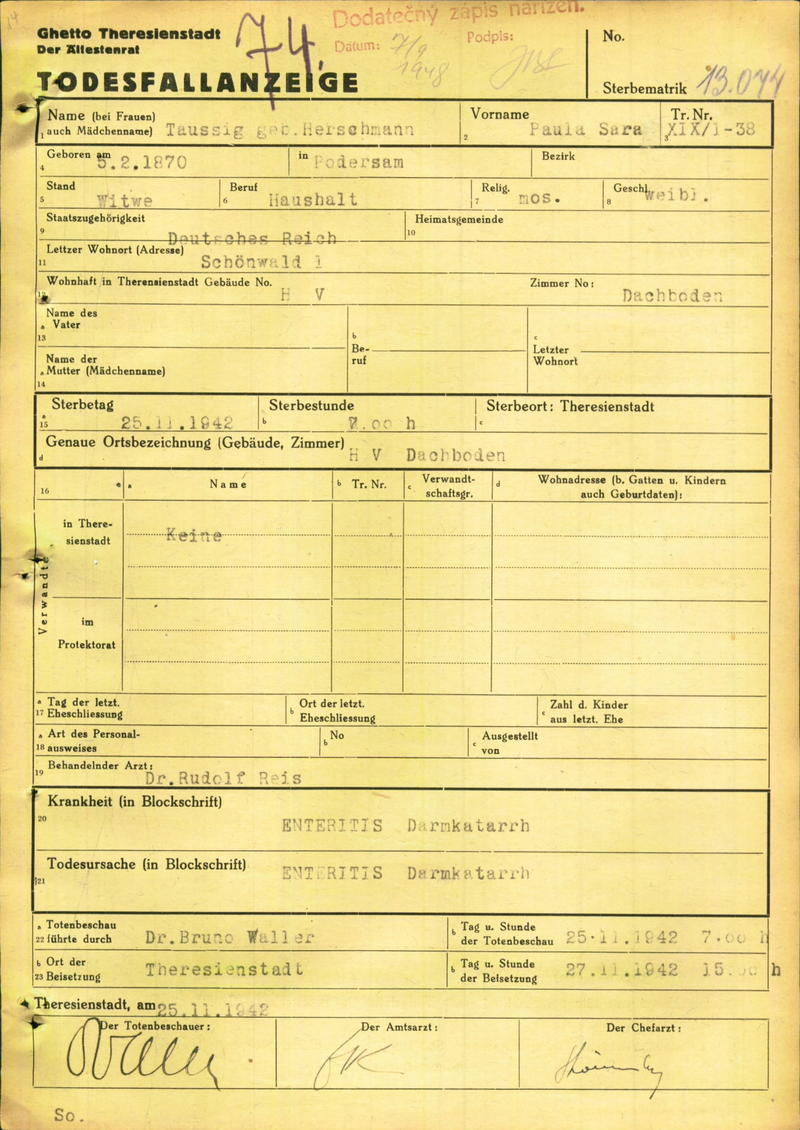 Dodatečný zápis nařízen.
Datum: 7/9 1948 Podpis:
Ghetto Theresienstadt
Der Ältestenrat
74.
No.
TODESFALLANZEIGE
Sterbematrik 13.044
Name (bei Frauen) auch Mädchenname) Taussig geb.Herschmann
1
Vorname Paula Sara
2
Tr. Nr. XIX/1-38
3
Geboren am 5.2.1870 in Podersam Bezirk
4
Stand Witwe Beruf Haushalt Relig. mos. Geschl. weibl.
5 6 7 8
Staatszugehörigkeit Deutsches Reich Heimatsgemeinde
9 10
Lettzer Wohnort (Adresse) Schönwald 1
11
Wohnhaft in Theresienstadt Gebäude No. H V Zimmer No: Dachboden
Name des
a Vater
13
b Beruf
c Letzter Wohnort
Name der
a Mutter (Mädchenname)
14
Sterbetag 25.11.1942 Sterbestunde 7.00 h Sterbeort: Theresienstadt
a 15 b c
Genaue Ortsbezeichnung (Gebäude, Zimmer) H V Dachboden
d
16 e a Name b Tr. Nr. c Verwandt-schaftsgr. d Wohnadresse (b. Gatten u. Kindern auch Geburtdaten):
Verwandte
in There-
sienstadt Keine
im
Protektorat
a Tag der letzt. b Ort der letzt. c Zahl d. Kinder
17 Eheschliessung Eheschliessung aus letzt. Ehe
a Art des Personal- b No c Ausgestellt
18 ausweises von
19 Behandelnder Arzt: Dr.Rudolf Reis
Krankheit (in Blockschrift)
20
ENTERITIS Darmkatarrh
Todesursache (in Blockschrift)
21
ENTERITIS Darmkatarrh
a Totenbeschau b Tag u. Stunde
22 führte durch Dr.Bruno Waller der Totenbeschau 25.11.1942 7.00 h
b Ort der b Tag u. Stunde
23 Beisetzung Theresienstadt der Beisetzung 27.11.1942 15.00 h
Theresienstadt, am 25.11.1942
Der Totenbeschauer: Der Amtsarzt: Der Chefarzt:
So.